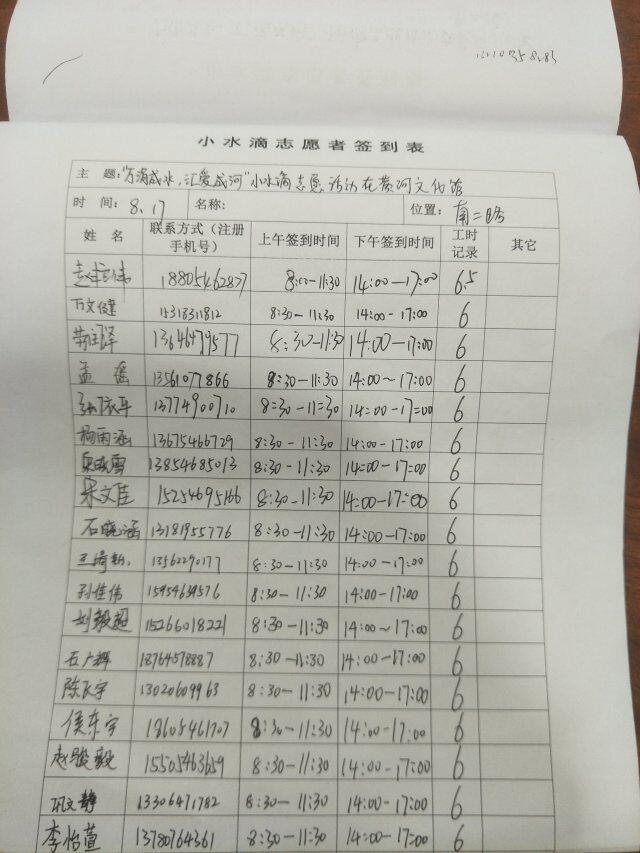 小水滴志愿者签到表
主 题:"万滴成水,汇爱成河"小水滴志愿活动在黄河文化馆
时 间: 8.17 名称: 位置: 南二路
姓 名 联系方式(注册手机号) 上午签到时间 下午签到时间 工时记录 其它
18805462827 8:00-11:30 14:00-17:00 6.5
万文健 8:30-11:30 14:00-17:00 6
13646479577 8:30-11:30 14:00-17:00 6
孟瑶 13561077866 8:30-11:30 14:00~17:00 6
13774900710 8:30-11:30 14:00-17:00 6
杨雨涵 13675466729 8:30-11:30 14:00-17:00 6
13854685013 8:30-11:30 14:00-17:00 6
宋文佳 15254695166 8:30-11:30 14:00-17:00 6
石晓涵 13181955776 8:30-11:30 14:00-17:00 6
13562290177 8:30-11:30 14:00-17:00 6
孙佳伟 8:30-11:30 14:00-17:00 6
刘毅超 15266018221 8:30-11:30 14:00~17:00 6
石广辉 18764578887 8:30-11:30 14:00-17:00 6
陈飞宇 13020609963 8:30-11:30 14:00-17:00 6
侯东宇 18605461707 8:30-11:30 14:00-17:00 6
赵骏毅 15505463659 8:30-11:30 14:00-17:00 6
巩文静 13306471782 8:30-11:30 14:00-17:00 6
李怡萱 13780764361 8:30-11:30 14:00-17:00 6